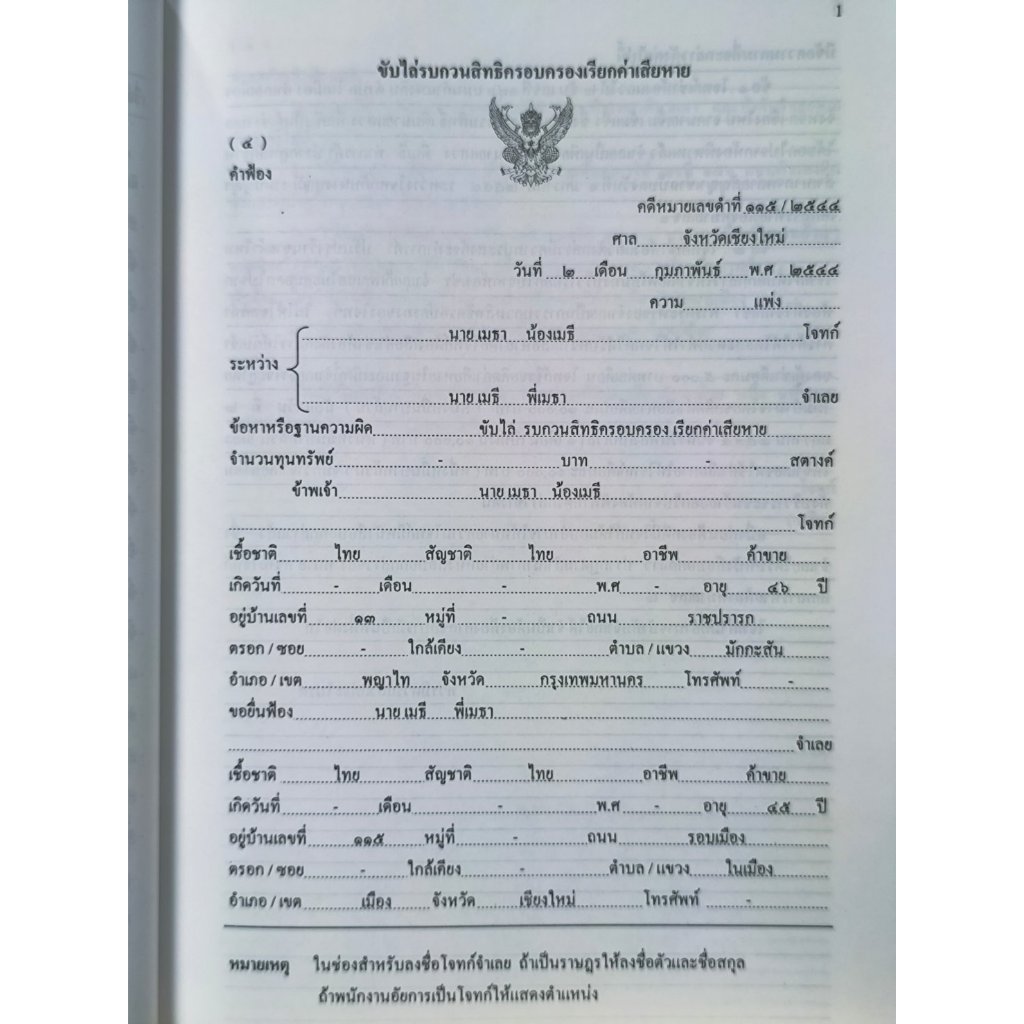 1
ขับไล่รบกวนสิทธิครอบครองเรียกค่าเสียหาย
( ๔ )
คำฟ้อง
คดีหมายเลขดำที่ ๑๑๕ / ๒๕๔๔
ศาล จังหวัดเชียงใหม่
วันที่ ๒ เดือน กุมภาพันธ์ พ.ศ ๒๕๔๔
ความ แพ่ง
นาย เมธา น้องเมธี โจทก์
ระหว่าง
นาย เมธี พี่เมธา จำเลย
ข้อหาหรือฐานความผิด ขับไล่ รบกวนสิทธิครอบครอง เรียกค่าเสียหาย
จำนวนทุนทรัพย์ - บาท - สตางค์
ข้าพเจ้า นาย เมธา น้องเมธี
โจทก์
เชื้อชาติ ไทย สัญชาติ ไทย อาชีพ ค้าขาย
เกิดวันที่ - เดือน - พ.ศ - อายุ ๔๖ ปี
อยู่บ้านเลขที่ ๑๓ หมู่ที่ - ถนน ราชปรารภ
ตรอก / ซอย - ใกล้เคียง - ตำบล / แขวง มักกะสัน
อำเภอ / เขต พญาไท จังหวัด กรุงเทพมหานคร โทรศัพท์ -
ขอยื่นฟ้อง นาย เมธี พี่เมธา
จำเลย
เชื้อชาติ ไทย สัญชาติ ไทย อาชีพ ค้าขาย
เกิดวันที่ - เดือน - พ.ศ - อายุ ๔๕ ปี
อยู่บ้านเลขที่ ๑๑๕ หมู่ที่ - ถนน รอบเมือง
ตรอก / ซอย - ใกล้เคียง - ตำบล / แขวง ในเมือง
อำเภอ / เขต เมือง จังหวัด เชียงใหม่ โทรศัพท์ -
หมายเหตุ ในช่องสำหรับลงชื่อโจทก์จำเลย ถ้าเป็นราษฎรให้ลงชื่อตัวและชื่อสกุล
ถ้าพนักงานอัยการเป็นโจทก์ให้แสดงตำแหน่ง